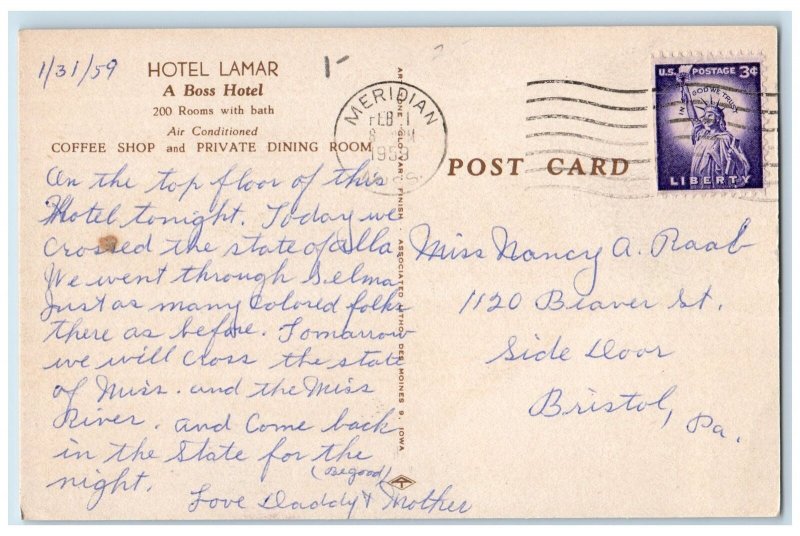 1/31/59
HOTEL LAMAR
A Boss Hotel
200 Rooms with bath
Air Conditioned
COFFEE SHOP and PRIVATE DINING ROOM
On the top floor of this
Hotel tonight. Today we
crossed the state of Alla
We went through Selma
Just as many Colored folks
there as before. Tomarrow
we will Cross the state
of Miss. and the Miss
River. and Come back
in the State for the
night. (Begood)
Love Daddy & Mother
GLO-VAR FINISH · ASSOCIATED DES MOINES 9, IOWA
MERIDIAN
FEB 1
1959
MISS.
POST CARD
U.S. POSTAGE 3¢
IN GOD WE TRUST
LIBERTY
Miss Nancy A. Raab
1120 Beaver St.
Side Door
Bristol, Pa.